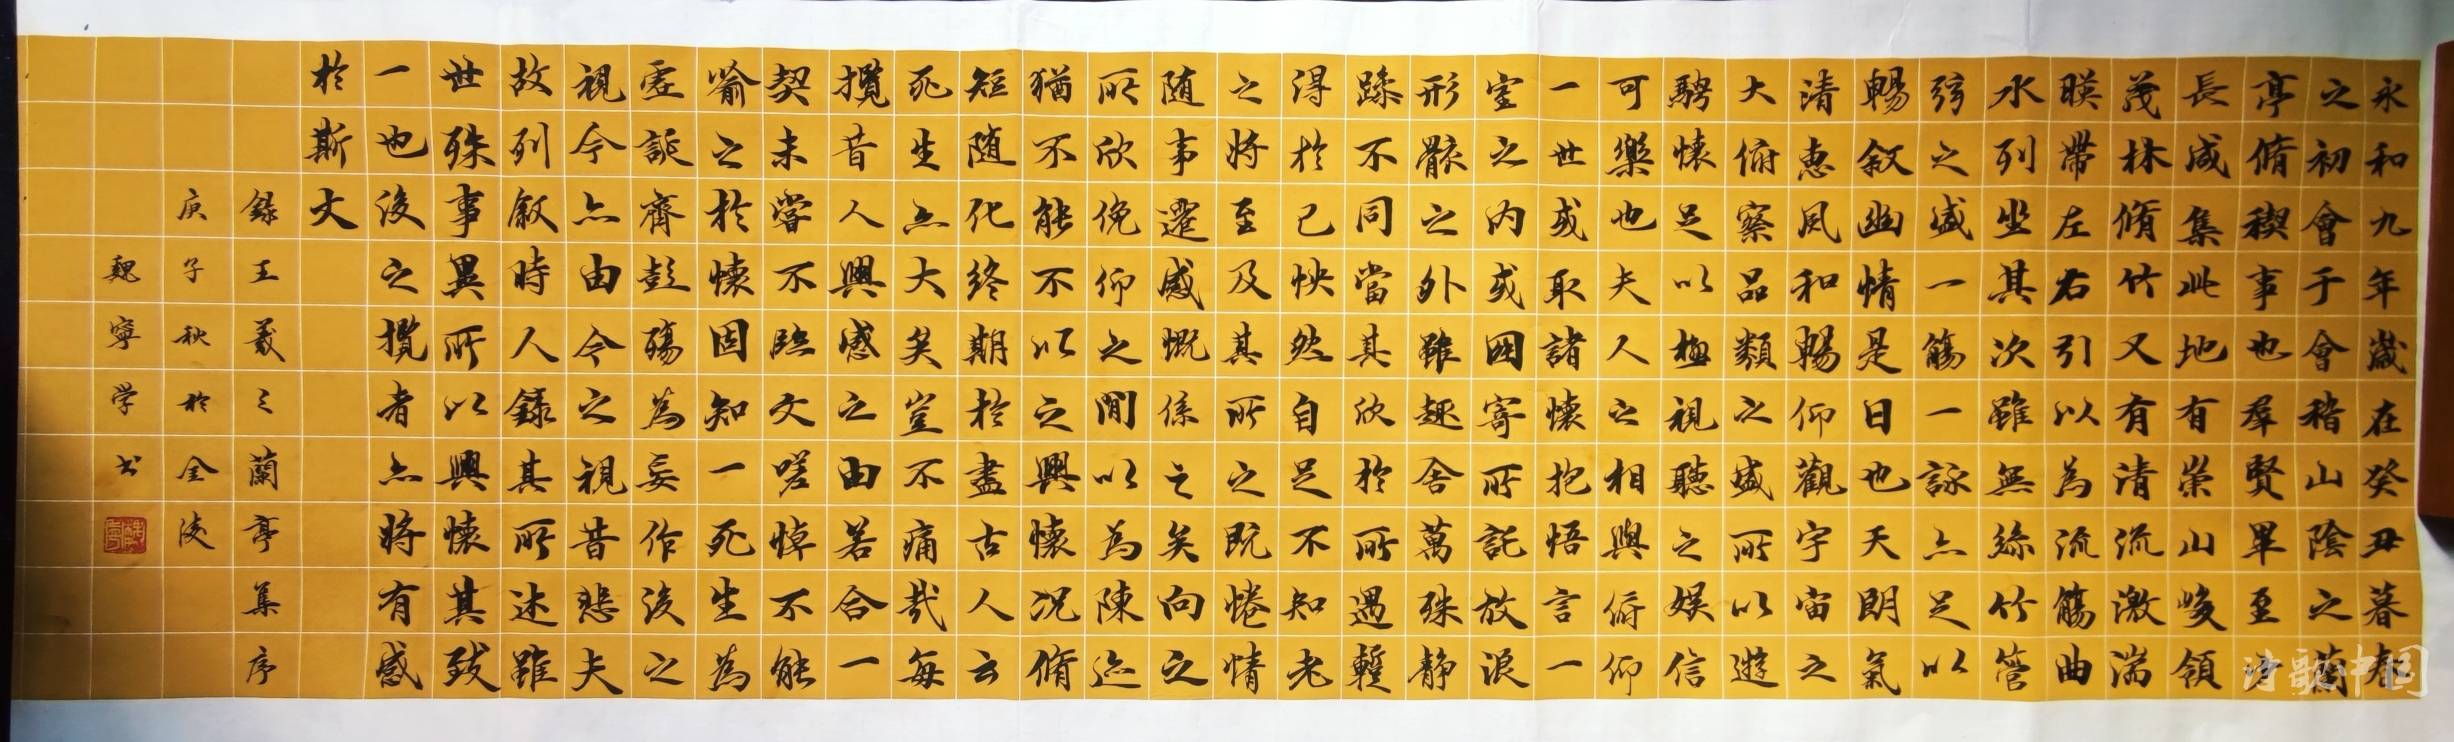 永和九年歲在癸丑暮春
之初會于會稽山陰之蘭
亭脩稧事也羣賢畢至少
長咸集此地有崇山峻領
茂林脩竹又有清流激湍
暎帶左右引以為流觴曲
水列坐其次雖無絲竹管
弦之盛一觴一詠亦足以
暢叙幽情是日也天朗氣
清惠風和暢仰觀宇宙之
大俯察品類之盛所以遊
騁懷足以極視聽之娛信
可樂也夫人之相與俯仰
一世或取諸懷抱悟言一
室之內或因寄所託放浪
形骸之外雖趣舍萬殊静
躁不同當其欣於所遇蹔
得於己怏然自足不知老
之將至及其所之既惓情
随事遷感慨係之矣向之
所欣俛仰之閒以為陳迹
猶不能不以之興懷況脩
短随化終期於盡古人云
死生亦大矣豈不痛哉每
攬昔人興感之由若合一
契未嘗不臨文嗟悼不能
喻之於懷固知一死生為
虛誕齊彭殤為妄作後之
視今亦由今之視昔悲夫
故列叙時人錄其所述雖
世殊事異所以興懷其致
一也後之攬者亦將有感
於斯文
錄王羲之蘭亭集序
庚子秋於金陵
魏寧学书
魏寧
诗歌中国